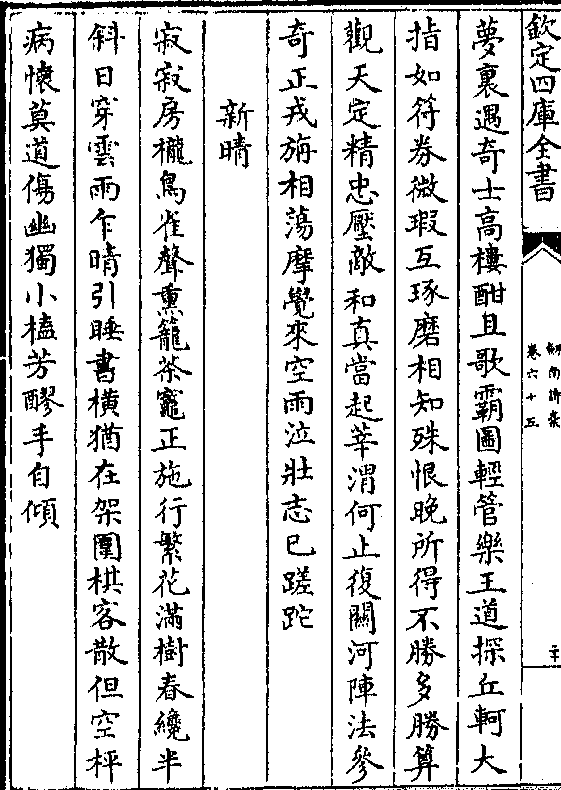 欽定四庫全書
劍南詩稾
卷六十五
夢裏遇奇士高樓酣且歌霸圖輕管樂王道探丘軻大
指如符券微瑕互琢磨相知殊恨晚所得不勝多勝算
觀天定精忠壓敵和真當起莘渭何止復關河陣法參
奇正戎旃相蕩摩覺來空雨泣壯志已蹉跎
新晴
寂寂房櫳鳥雀聲熏籠茶竈正施行繁花滿樹春纔半
斜日穿雲雨乍晴引睡書橫猶在架圍棋客散但空枰
病懷莫道傷幽獨小榼芳醪手自傾